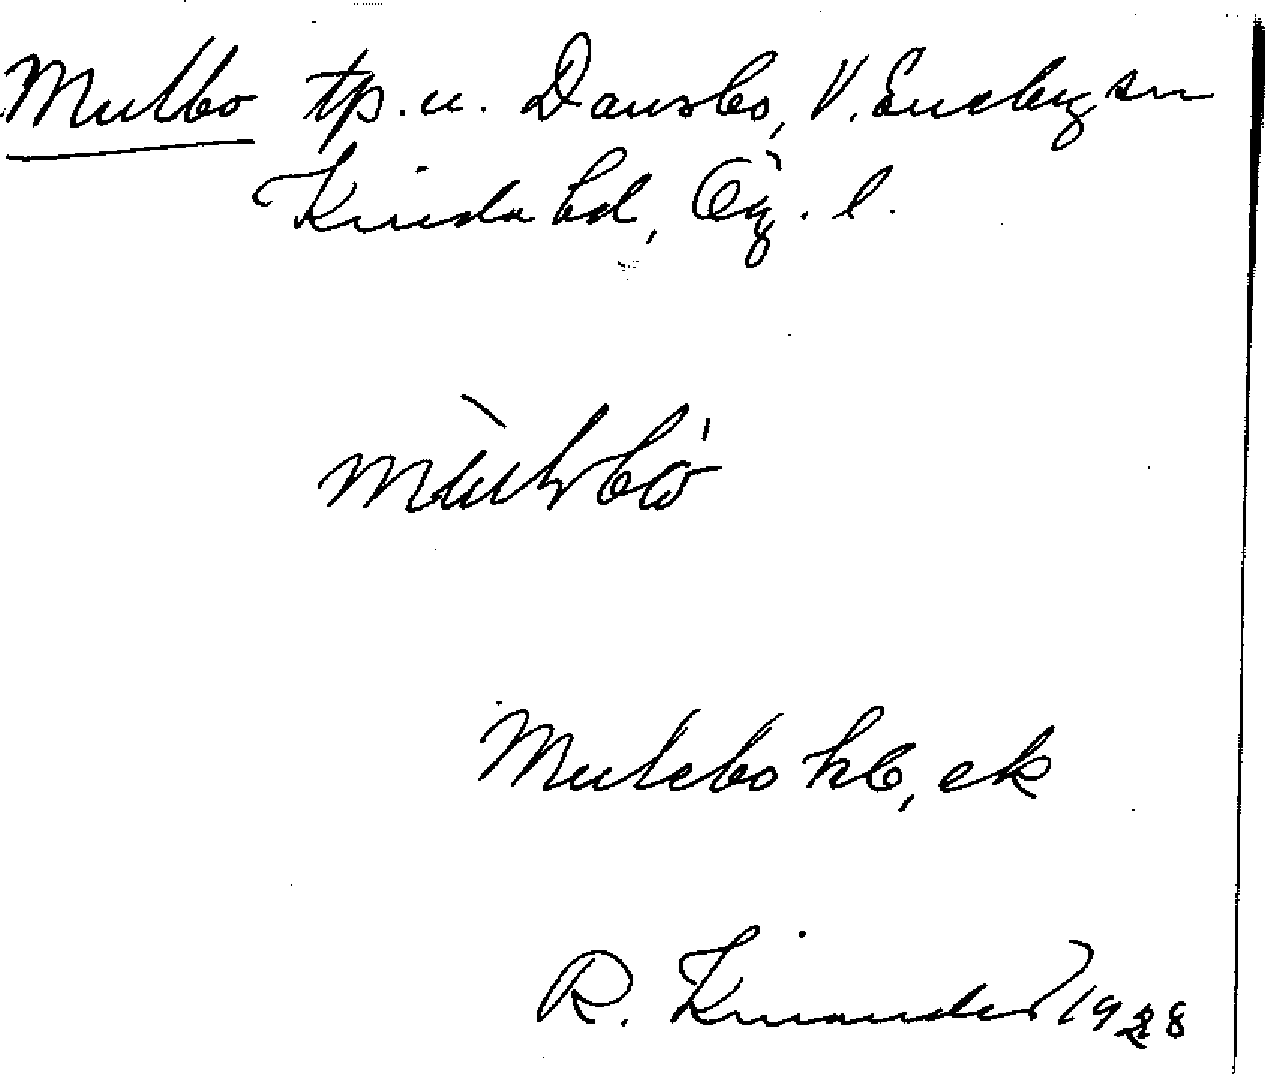 Mulbo tp. u. Dansbo, V. Eneby sn
Kinda hd, Ög. l.
Mulebo hb, ek
R. Kinander 1928